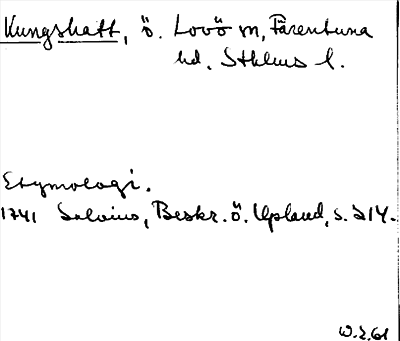 Kungshatt, ö. Lovö sn, Färentuna
hd. Sthlms l.
Etymologi.
1741 Salvius, Beskr. ö. Upland, s. 214.
W.2.61